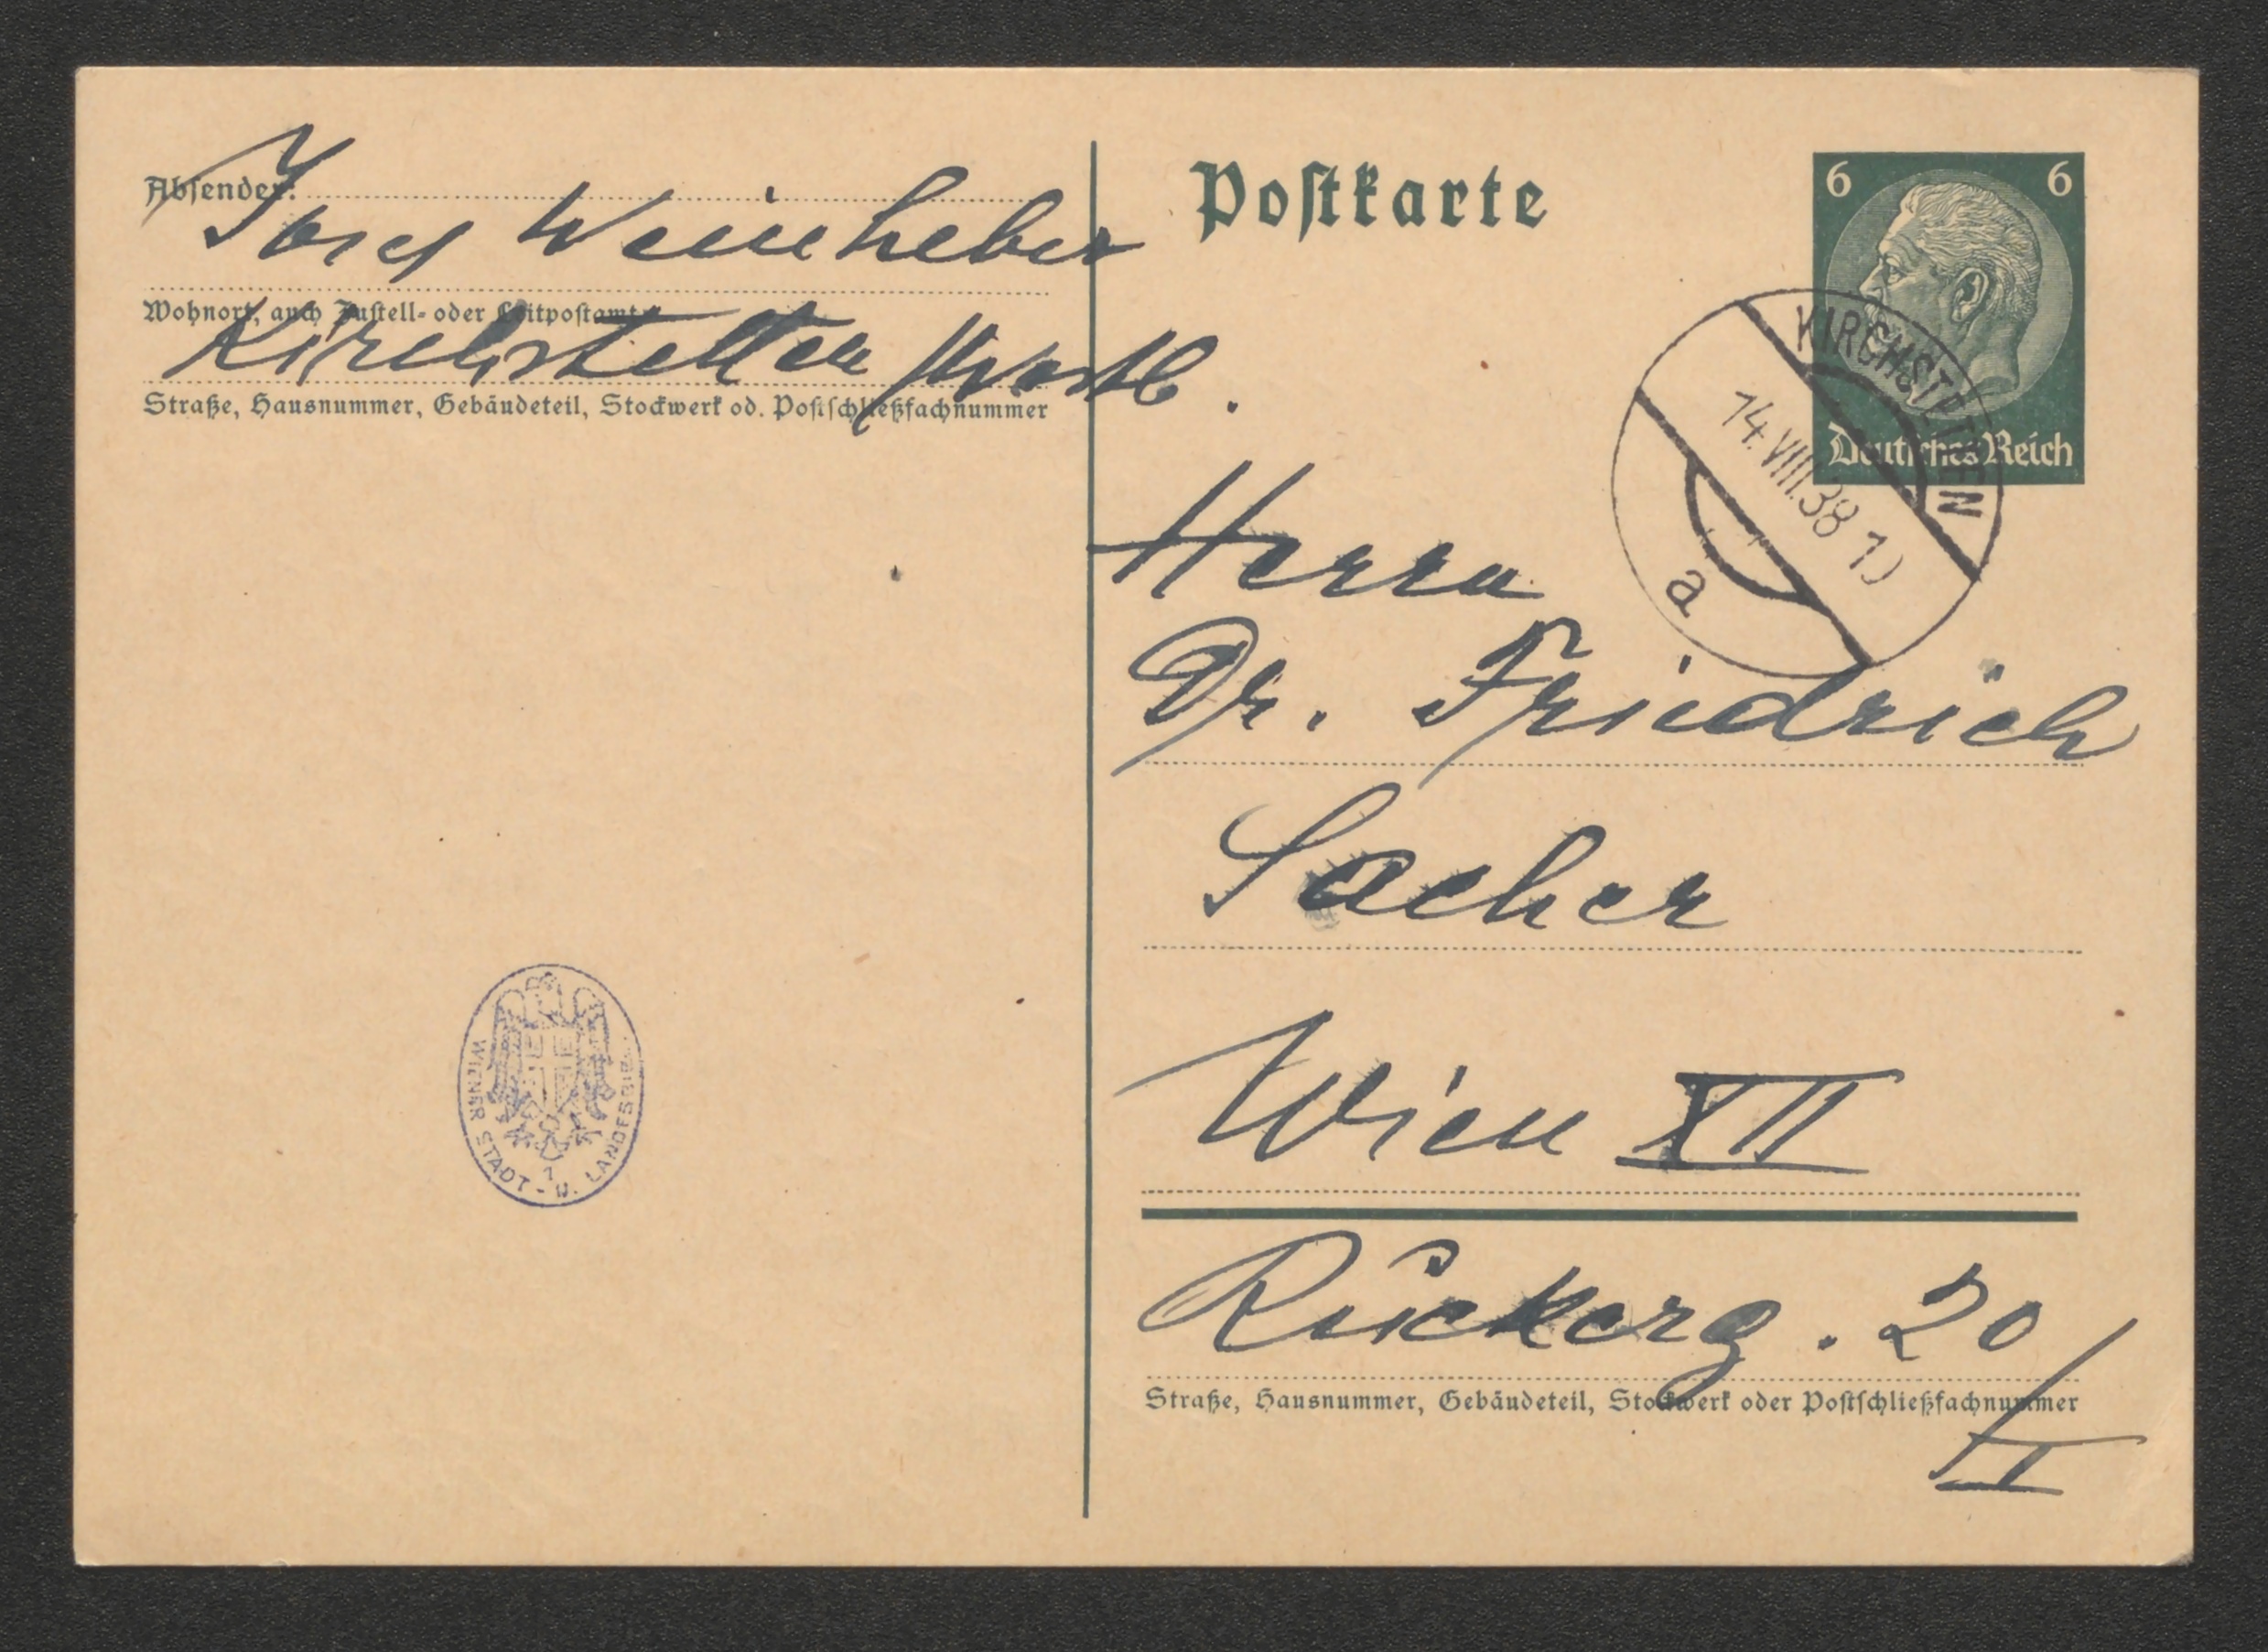 Absender:
Josef Weinheber
Wohnort, auch Zustell- oder Leitpostamt
Kirchstetten / Westb.
Straße, Hausnummer, Gebäudeteil, Stockwerk od. Postschließfachnummer
WIENER STADT - U. LANDESBIBL.
Postkarte
6 6
Deutsches Reich
KIRCHSTETTEN
14.VIII.38
a
Herrn
Dr. Friedrich
Sacher
Wien XII
Rückerg. 20
/I
Straße, Hausnummer, Gebäudeteil, Stockwerk oder Postschließfachnummer